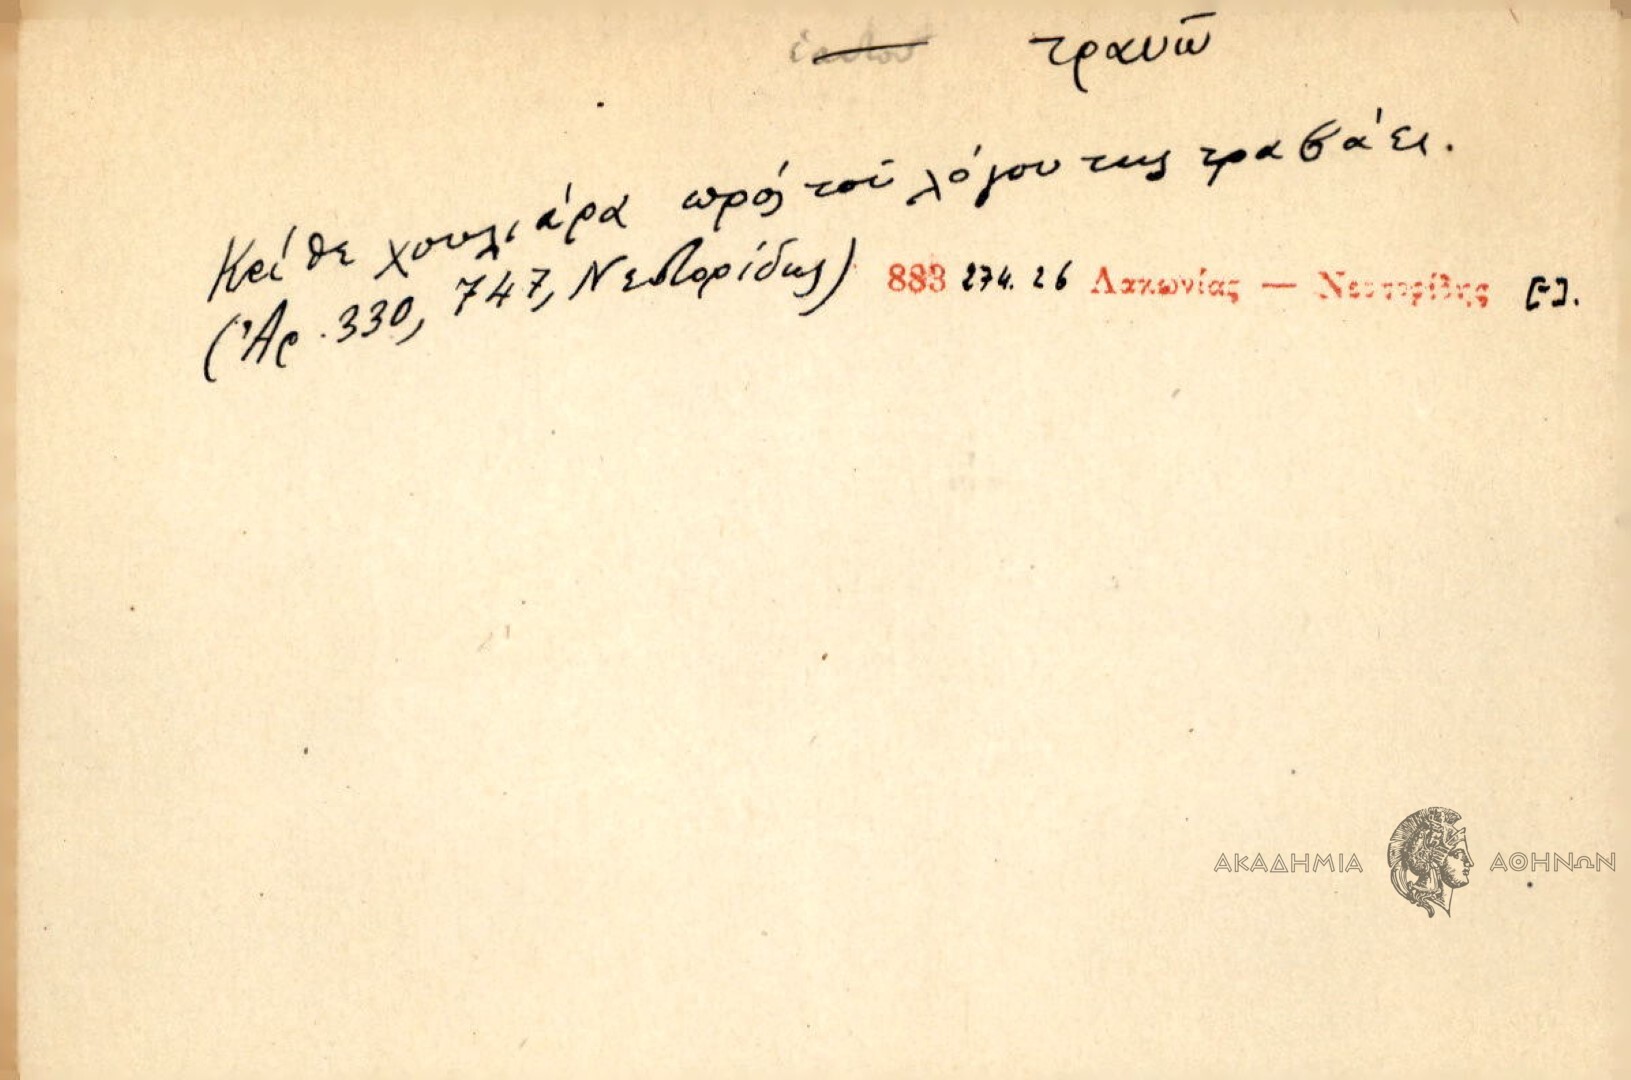 τραυῶ
Κάθε χουλιάρα πρός τοῦ λόγου της τραβάει.
(Ἀρ. 330, 747, Νεστορίδης) 883 274. 26 Λακωνίας — Νεστορίδης [-].
ΑΚΑΔΗΜΙΑ ΑΘΗΝΩΝ